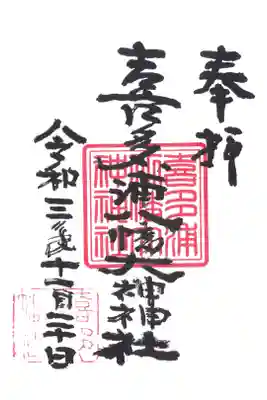 奉拝
喜多浦八幡大神神社
令和三年十一月二十日
喜多浦
八幡大
神神社